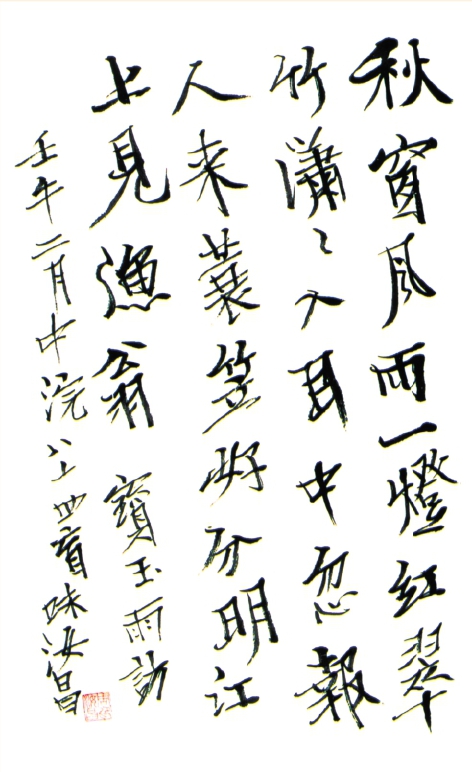 秋窗風雨一燈紅翠
竹瀟〻入耳中忽報
人来蓑笠好分明江
上見漁翁 寶玉雨訪
壬午二月中浣八十四盲汝昌